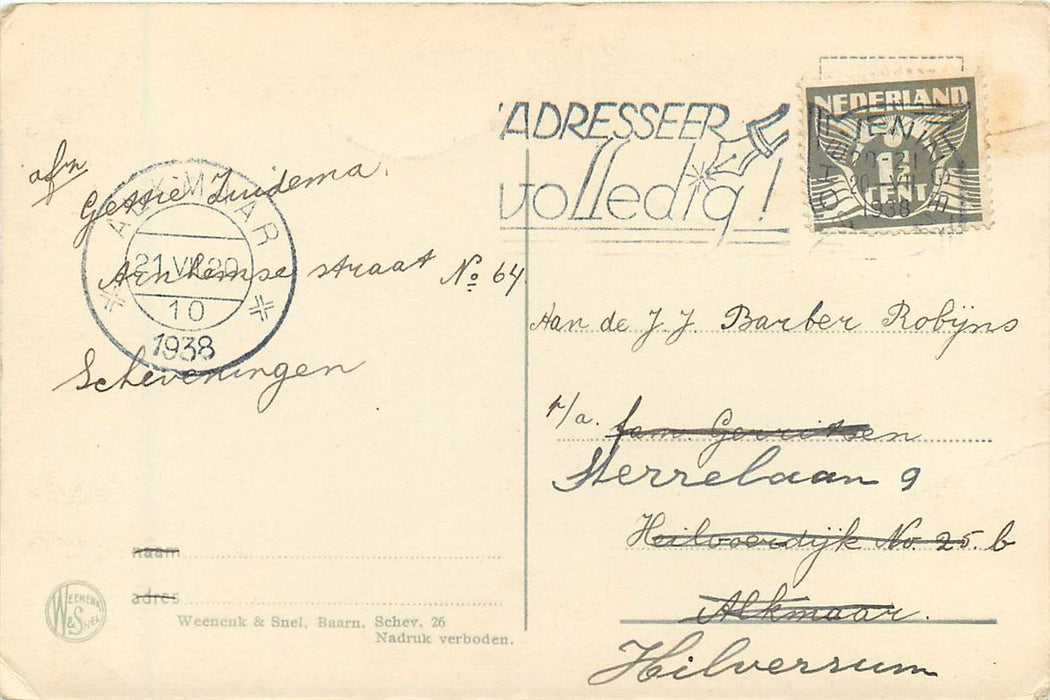 afn
Gettie Zuidema.
Arnhemse straat No 64
Scheveningen
ALKMAAR
21.VII.20
10
1938
naam
adres
WEENENK & SNEL
Weenenk & Snel, Baarn. Schev. 26
Nadruk verboden.
ADRESSEER
volledig!
NEDERLAND
CENT
20-21
20.VII
1938
Aan de J. J. Barber Robijns
p/a. fam Gerritsen
Sterrelaan 9
Heilvoerdijk No. 25. b
Alkmaar.
Hilversum